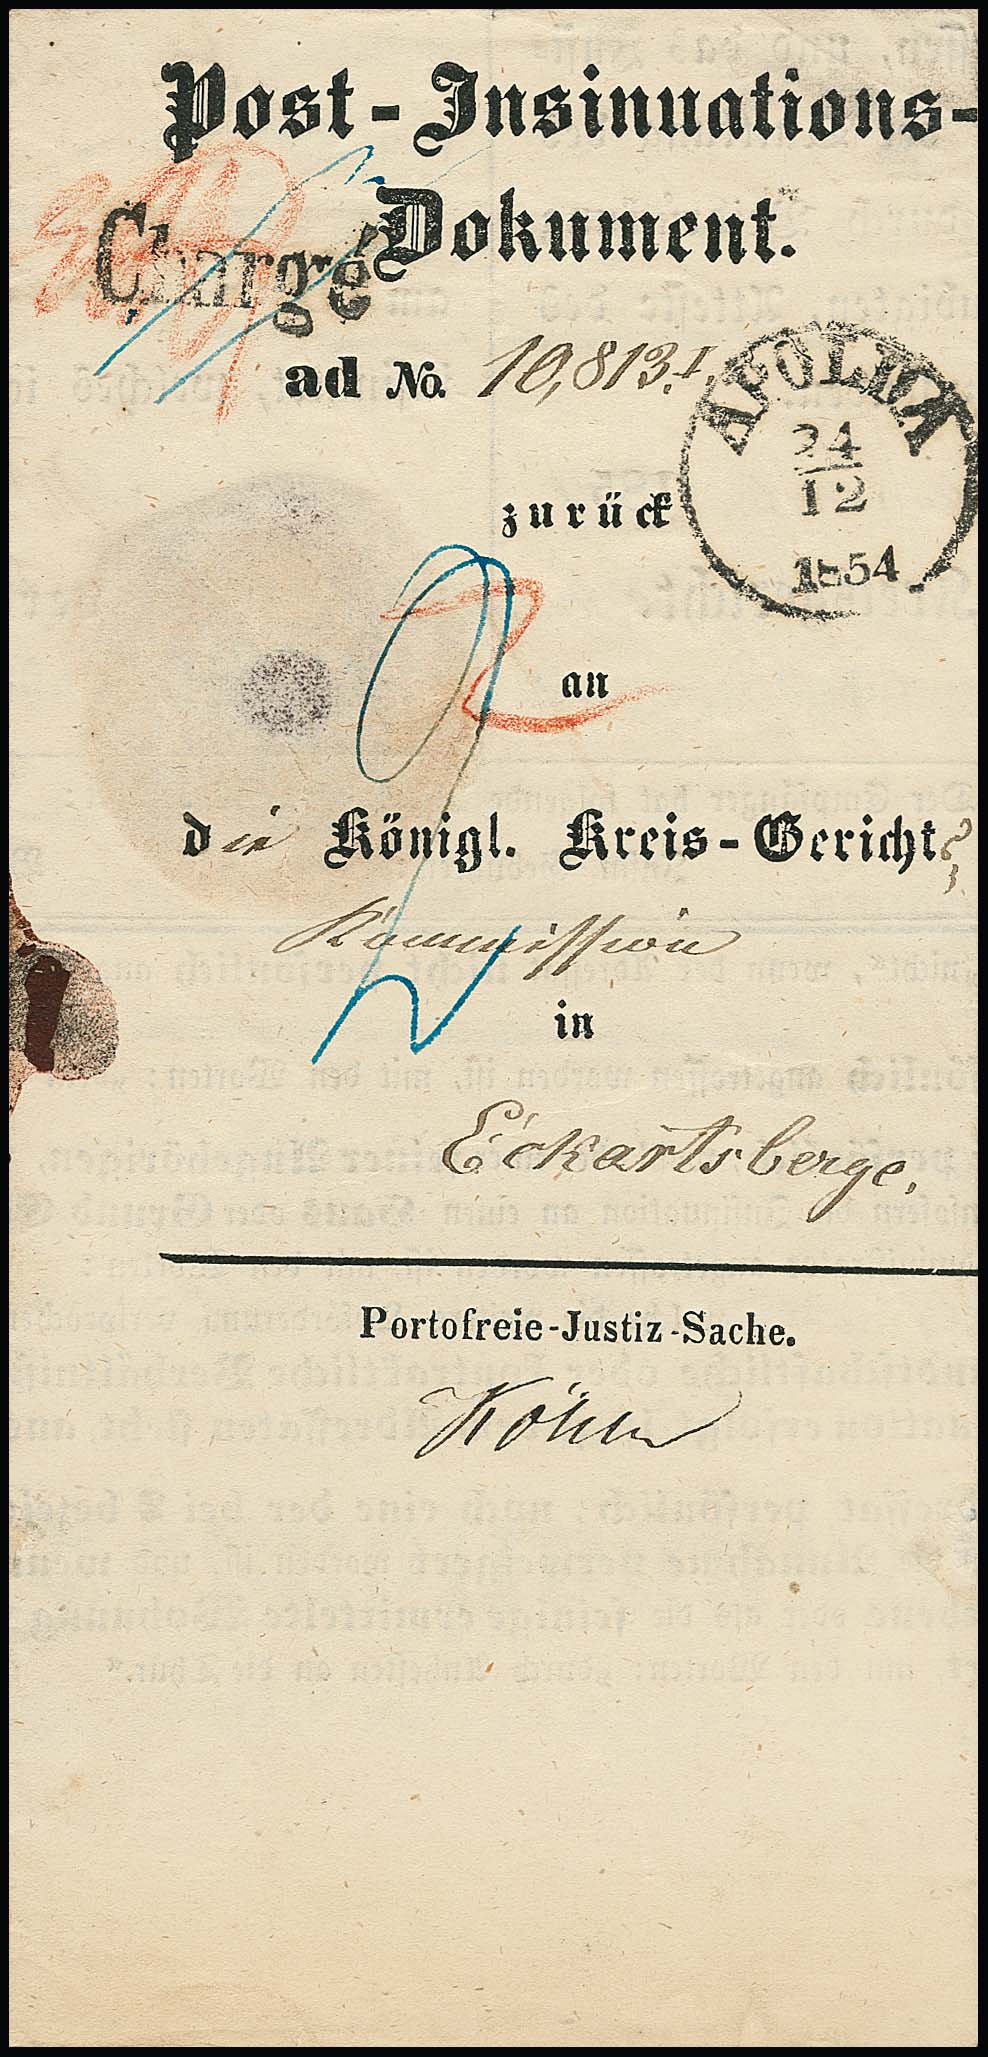 Post-Insinuations-
Dokument.
Chargé
ad No. 10,813.I.
APOLDA
24
12
1854
zurück
an
die Königl. Kreis-Gerichts
Kommission
in
Eckartsberge.
Portofreie-Justiz-Sache.